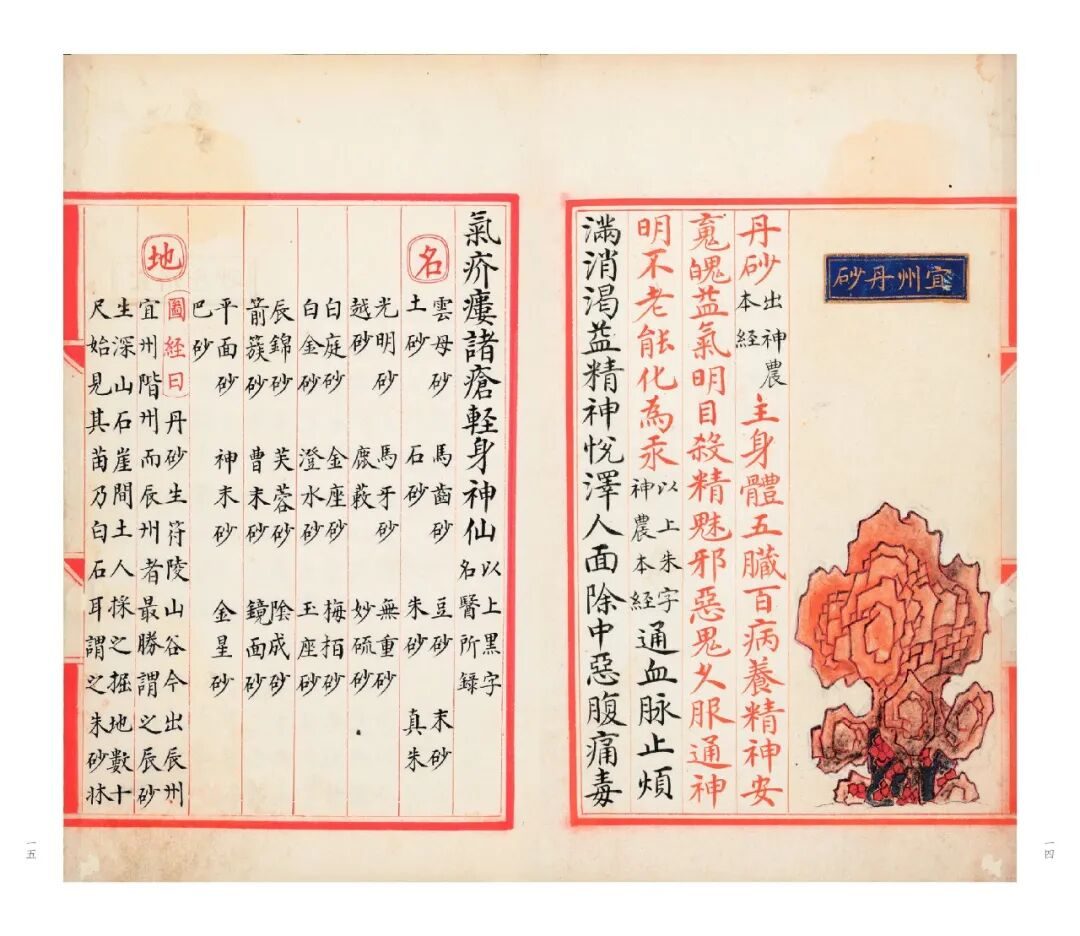 宜州丹砂
丹砂出神農本經主身體五臟百病養精神安
䰟魄益氣明目殺精魅邪惡鬼久服通神
明不老能化為汞以上朱字神農本經通血脉止煩
滿消渴益精神悅澤人面除中惡腹痛毒
一四
氣疥瘻諸瘡輕身神仙以上黑字名醫所録
名
雲母砂 馬齒砂 豆砂 末砂
土砂 石砂 朱砂 真朱
光明砂 馬牙砂 無重砂
越砂 鹿藙 妙硫砂
白庭砂 金座砂 梅栢砂
白金砂 澄水砂 玉座砂
辰錦砂 芙蓉砂 陰成砂
箭簇砂 曹末砂 鏡面砂
平面砂 神末砂 金星砂
巴砂
地
圖經曰丹砂生符陵山谷今出辰州
宜州階州而辰州者最勝謂之辰砂
生深山石崖間土人採之掘地數十
尺始見其苗乃白石耳謂之朱砂牀
一五